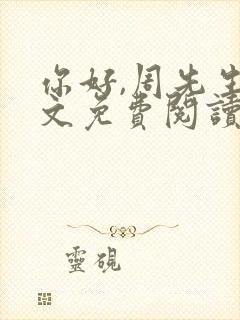 你好,周先生
文免費閱讀
靈硯